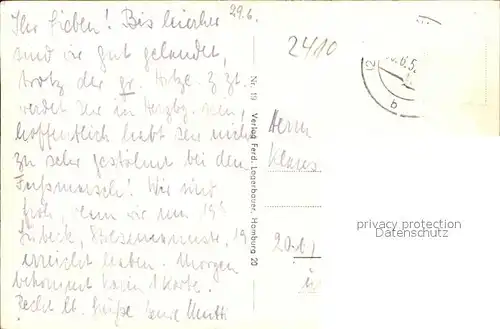 29.6.
Ihr Lieben! Bis hierher
sind wir gut gelandet,
trotz der gr. Hitze. Z. Zt.
werdet Ihr in sein,
hoffentlich habt Ihr nicht
zu sehr gestöhnt bei dem
Fußmarsch! Wir sind
froh, wenn wir um 19
Lübeck, 19
erreicht haben. Morgen
bekommt 1 Karte.
Recht lb. Grüße Eure Mutti
Nr. 19 Verlag Ferd. Lagerbauer, Hamburg 20
2410
Herrn
Klaus
privacy protection
Datenschutz